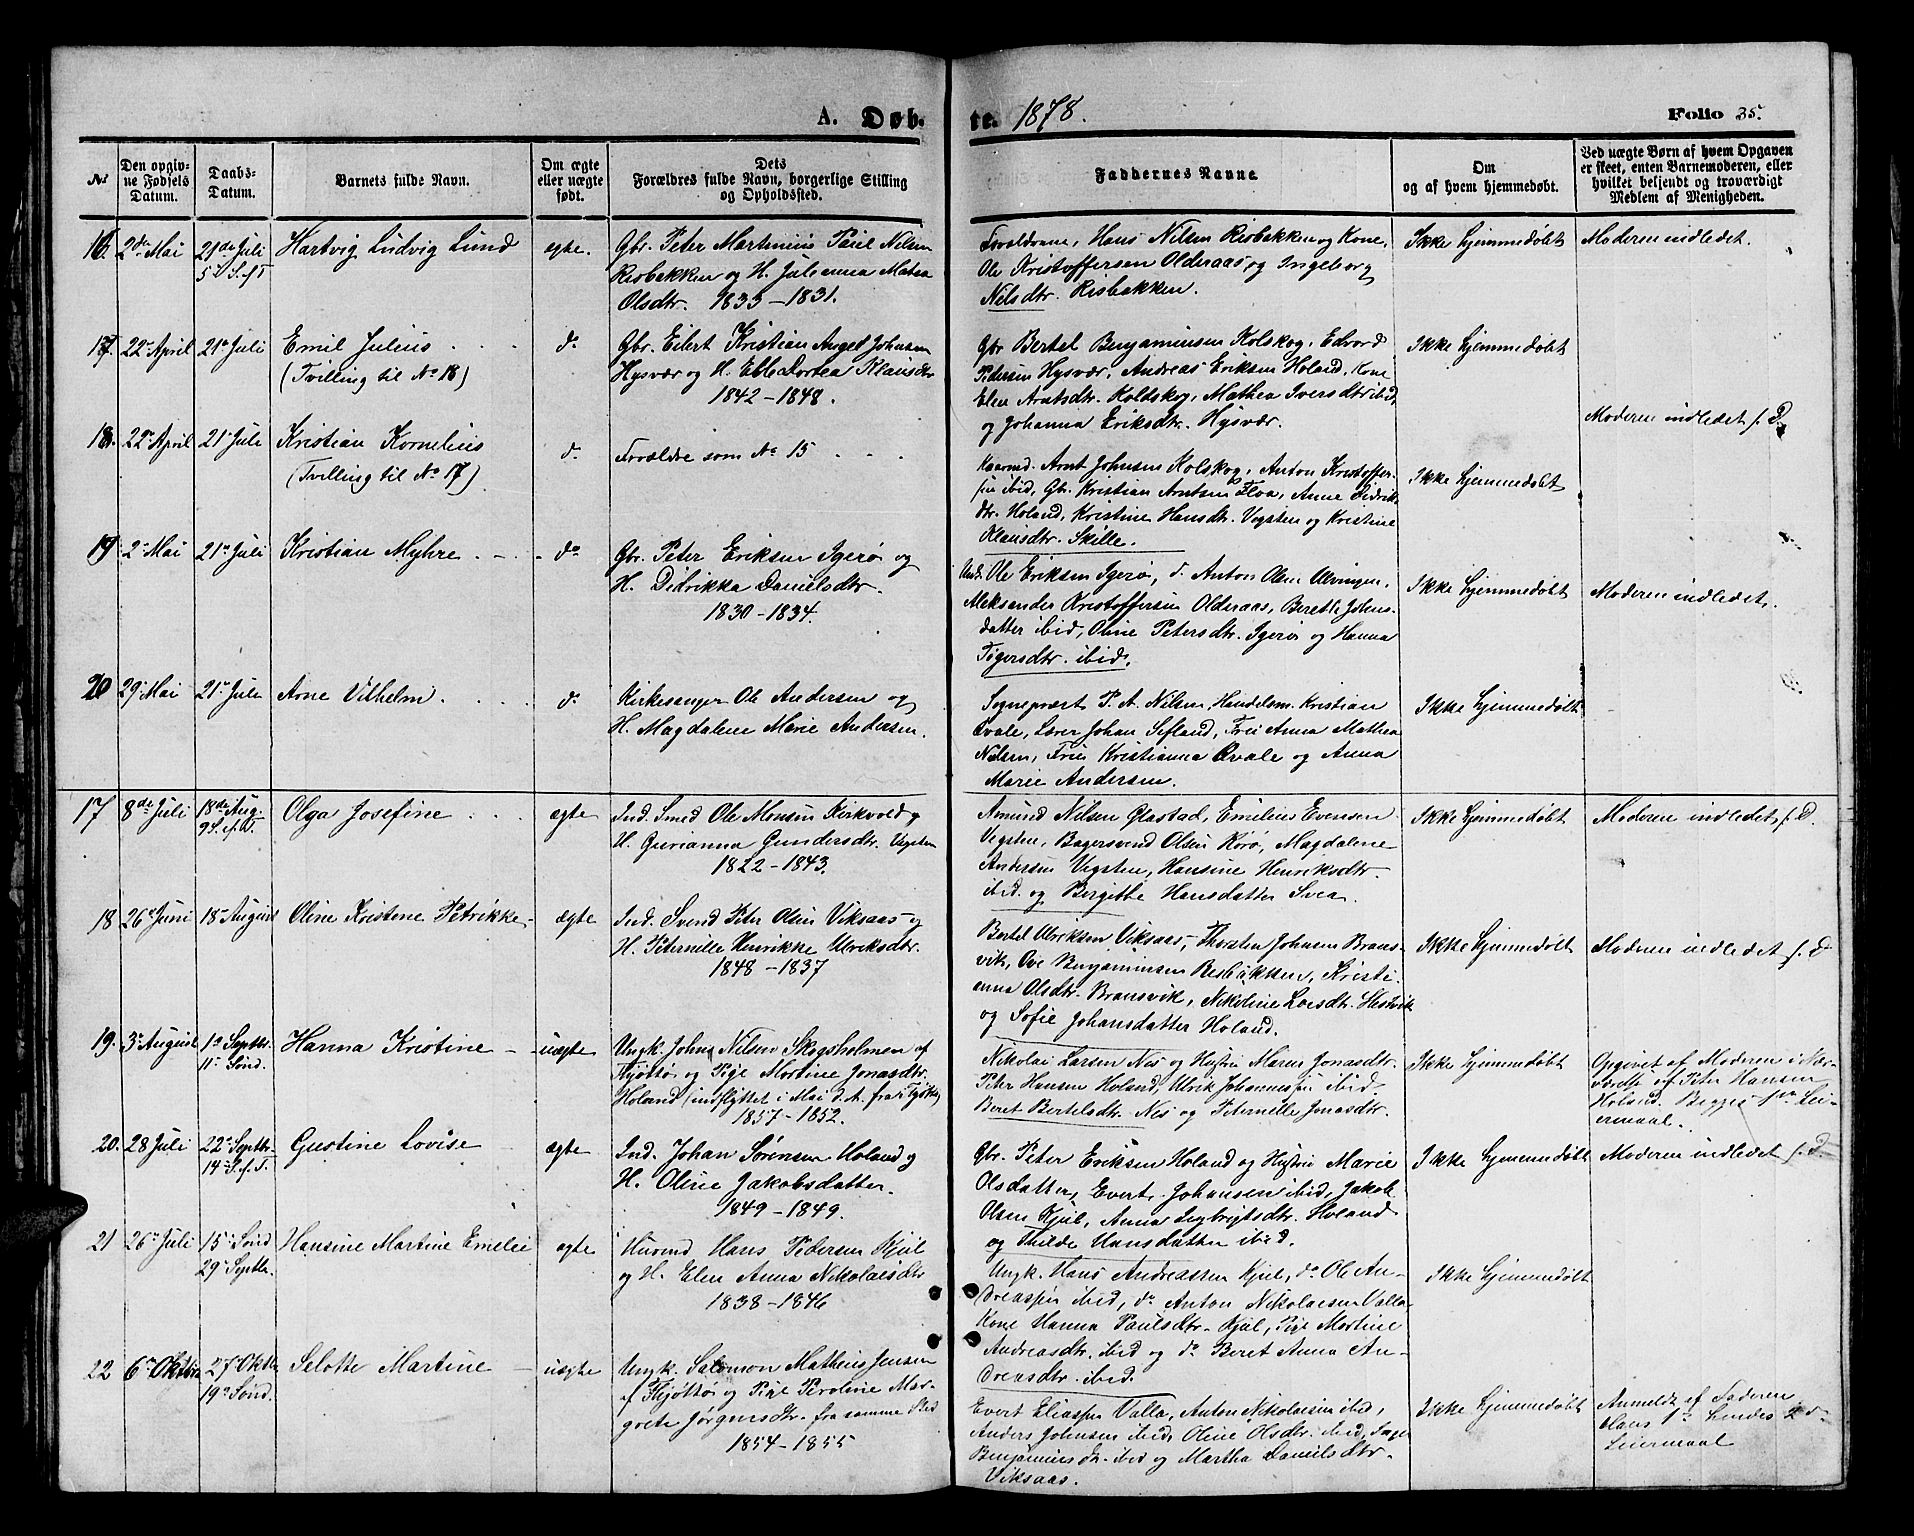 A. Døb-
te. 1878.
Folio 35.
No
Den opgiv-
ne Fødsels
Datum.
Daabs-
Datum.
Barnets fulde Navn.
Om ægte
eller uægte
født.
Dets
Forældres fulde Navn, borgerlige Stilling
og Opholdssted.
Faddernes Navne.
Om
og af hvem hjemmedøbt.
Ved uægte Børn af hvem Opgaven
er skeet, enten Barnemoderen, eller
hvilket beljendt og troværdigt
Medlem af Menigheden.
16. 2den Mai 21de Juli Hartvig Ludvig Lund egte.
5 S. f T
Gbr. Peter Martinius Paul Nilsen
Risbakken og H. Julianna Matea
Olsdtr. 1833-1831.
Forældrene, Hans Nilsen Risbakken og Kone,
Ole Kristoffersen Olderaas, og Ingeborg
Nilsdtr. Risbakken.
Ikke hjemmedøbt
Moderen indledet.
17. 22 April 21 Juli Emil Julius do
(Tvilling til No 18)
Gbr. Eilert Kristian Angel Johnsen
Hysvær og H. Ebbe Dortea Klausdtr
1842-1848.
Gbr Bertel Benjaminsen Kolskog, Edvard
Pedersen Hysvær, Andreas Eriksen Holand, Kone
Elen Arntsdtr. Koldskog, Mathea Iversdtr ibid,
og Johanna Eriksdtr. Hysvær.
Ikke hjemmedøbt
Moderen indledet f. D.
18. 22 April 21 Juli Kristian Kornelius do
(Tvilling til No 17)
Forældre som No 15
Kaarmd. Arnt Johnsen Kolskog, Anton Kristoffer-
sen ibid, Gbr. Kristian Arntsen Floa, Anne Didriks
dtr. Holand, Kristine Hansdtr. Vegsten og Kristine
Klausdtr. Skille.
Ikke hjemmedøbt
19 2 Mai 21 Juli Kristian Myhre do
Gbr. Peter Eriksen Igerø og
H. Didrikka Danielsdtr.
1830-1834.
Ole Eriksen Igerø, d. Anton Olsen Ulvingen,
Aleksander Kristoffersen Olderaas, Berethe Johns-
datter ibid, Oline Petersdtr. Igerø og Hanna
Tøgersdtr. ibid.
Ikke hjemmedøbt
Moderen indledet.
20 29 Mai 21 Juli Arne Vilhelm do
Kirkesanger Ole Andersen og
H. Magdalene Marie Andersen.
Sogneprest P. A. Nilsen, Handelsm. Kristian
Qvale, Lærer Johan Sefland, Fru Anna Mathea
Nilsen, Fru Kristianna Qvale og Anna
Marie Andersen.
Ikke hjemmedøbt
17 8de Juli 18de Aug. Olga Josefine ægte
9 S. f. D.
Ind. Smed Ole Monsen Kirkvold og
H. Gurianna Gundersdtr. Vegsten
1822-1843.
Amund Nilsen Glastad, Emilius Evensen
Vegsten, Bagersvend Olsen Rørø, Magdalene
Andersen Vegsten, Hansine Henriksdtr.
ibid. og Bergitte Hansdatter Svea.
Ikke hjemmedøbt
Moderen indledet f. D.
18 26 Juni 18 August Oline Kristine Petrikke ægte
Ind. Svend Peter Olsen Viksaas og
H. Peternille Henrikke Ulriksdtr.
1848-1837
Bertel Ulriksen Viksaas, Thorsten Johnsen Brans-
vik, Ove Benjaminsen Resbakken, Kristi-
anna Olsdtr. Bransvik, Nikoline Larsdtr. Hestvik
og Sofie Johansdatter Holand.
Ikke hjemmedøbt
Moderen indledet f. D
19. 3 August 1 Septbr. Hanna Kristine uægte
11 Sønd.
Ungk. John Nilsen Skogsholmen af
Tjøttø og Pige Martine Jonasdtr.
Holand (indflyttet i Mai d. A. fra Tjøttø)
1857-1852.
Nikolai Larsen Nes og Hustru Maren Jonasdtr.
Peter Hansen Holand, Ulrik Johannessen ibid.
Beret Bertelsdtr. Nes og Peternelle Jonasdtr.
Ikke hjemmedøbt
Opgivet af Moderen i Nær-
værelse af Peter Hansen
Holand. Begges 1ste Lei-
ermaal.
20. 28 Juli 22 Septbr. Gustine Lovise ægte
14 S. f. T.
Ind. Johan Sørensen Holand og
H. Oline Jakobsdatter.
1849-1849.
Gbr. Peter Eriksen Holand og Hustru Marie
Olsdatter, Evert Johansen ibid, Jakob
Olsen Kjul, Anna Ingbrigtsdtr. Holand
og Thilde Hansdatter ibid.
Ikke hjemmedøbt
Moderen indledet f. D
21 26 Juli 15 Sønd Hansine Martine Emelie ægte
29 Septbr.
Husmd Hans Pedersen Kjul
og H. Elen Anna Nikolaisdtr
1838-1846
Ungk. Hans Andreassen Kjul, do Ole An-
dreassen ibid, do Anton Nikolaisen Valla,
Kone Hanna Paulsdtr. Kjul, Pige Martine
Andreasdtr. ibid og do Beret Anna An-
dreasdtr. ibid.
Ikke hjemmedøbt
22 6 Oktbr 27 Oktbr Selotte Martine uægte
19 Sønd.
Ungk. Salomon Matheus Jensen
af Tjøttø og Pige Peroline Mar-
grete Jørgensdtr. fra samme Sted
1854-1855
Evert Eliassen Valla, Anton Nikolaisen ibid,
Anders Johnsen ibid, Oline Olsdtr. ibid, Inger
Benjaminsdtr. ibid og Martha Danielsdtr.
Viksaas.
Ikke hjemmedøbt
Anmeldt af Faderen
hans 1ste hendes 2det
Leiermaal